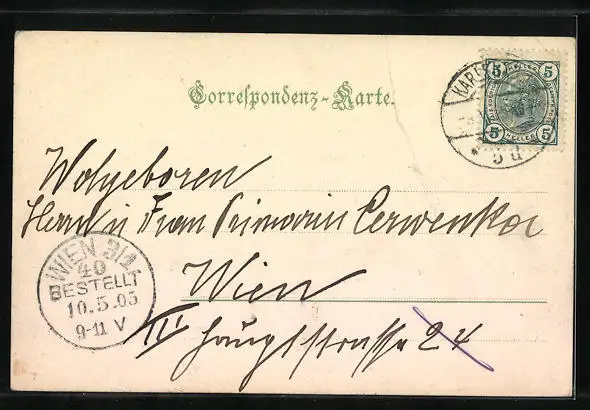 Correspondenz-Karte.
5 5
HELLER
5 5
HELLER
Wolgeboren
Herrn u Frau Primarin Cerwenka
Wien
III Hauptstrasse 24
WIEN 3/1
40
BESTELLT
10.5.05
9-11 V